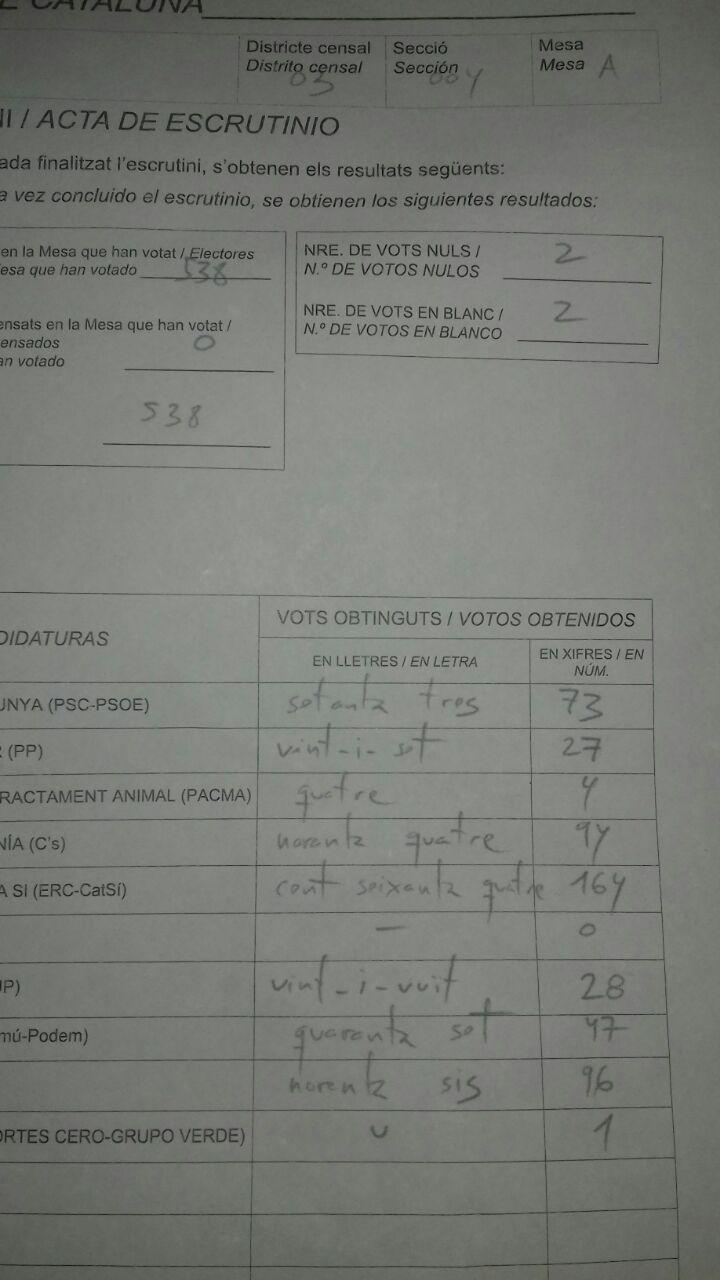 E CATALUNA
Districte censal
Distrito censal
03
Secció
Sección
004
Mesa
Mesa A
NI / ACTA DE ESCRUTINIO
ada finalitzat l'escrutini, s'obtenen els resultats següents:
a vez concluido el escrutinio, se obtienen los siguientes resultados:
en la Mesa que han votat / Electores
esa que han votado 538
ensats en la Mesa que han votat /
ensados 0
an votado
538
NRE. DE VOTS NULS / 2
N.º DE VOTOS NULOS
NRE. DE VOTS EN BLANC / 2
N.º DE VOTOS EN BLANCO
DIDATURAS
VOTS OBTINGUTS / VOTOS OBTENIDOS
EN LLETRES / EN LETRA
EN XIFRES / EN
NÚM.
UNYA (PSC-PSOE) setanta tres 73
(PP) vint-i-set 27
RACTAMENT ANIMAL (PACMA) quatre 4
NÍA (C's) noranta quatre 94
A SI (ERC-CatSí) cent seixanta quatre 164
— 0
UP) vint-i-vuit 28
mú-Podem) quaranta set 47
noranta sis 96
ORTES CERO-GRUPO VERDE) u 1